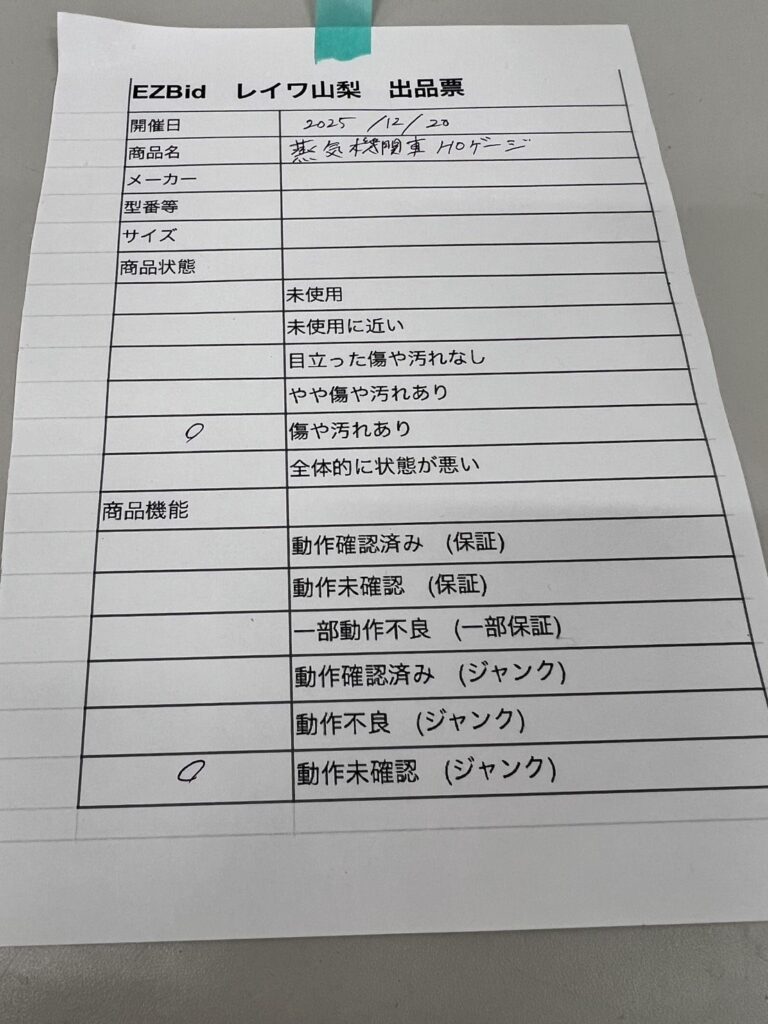 EZBid レイワ山梨 出品票
開催日 2025/12/20
商品名 蒸気機関車 HOゲージ
メーカー
型番等
サイズ
商品状態
未使用
未使用に近い
目立った傷や汚れなし
やや傷や汚れあり
○ 傷や汚れあり
全体的に状態が悪い
商品機能
動作確認済み (保証)
動作未確認 (保証)
一部動作不良 (一部保証)
動作確認済み (ジャンク)
動作不良 (ジャンク)
○ 動作未確認 (ジャンク)